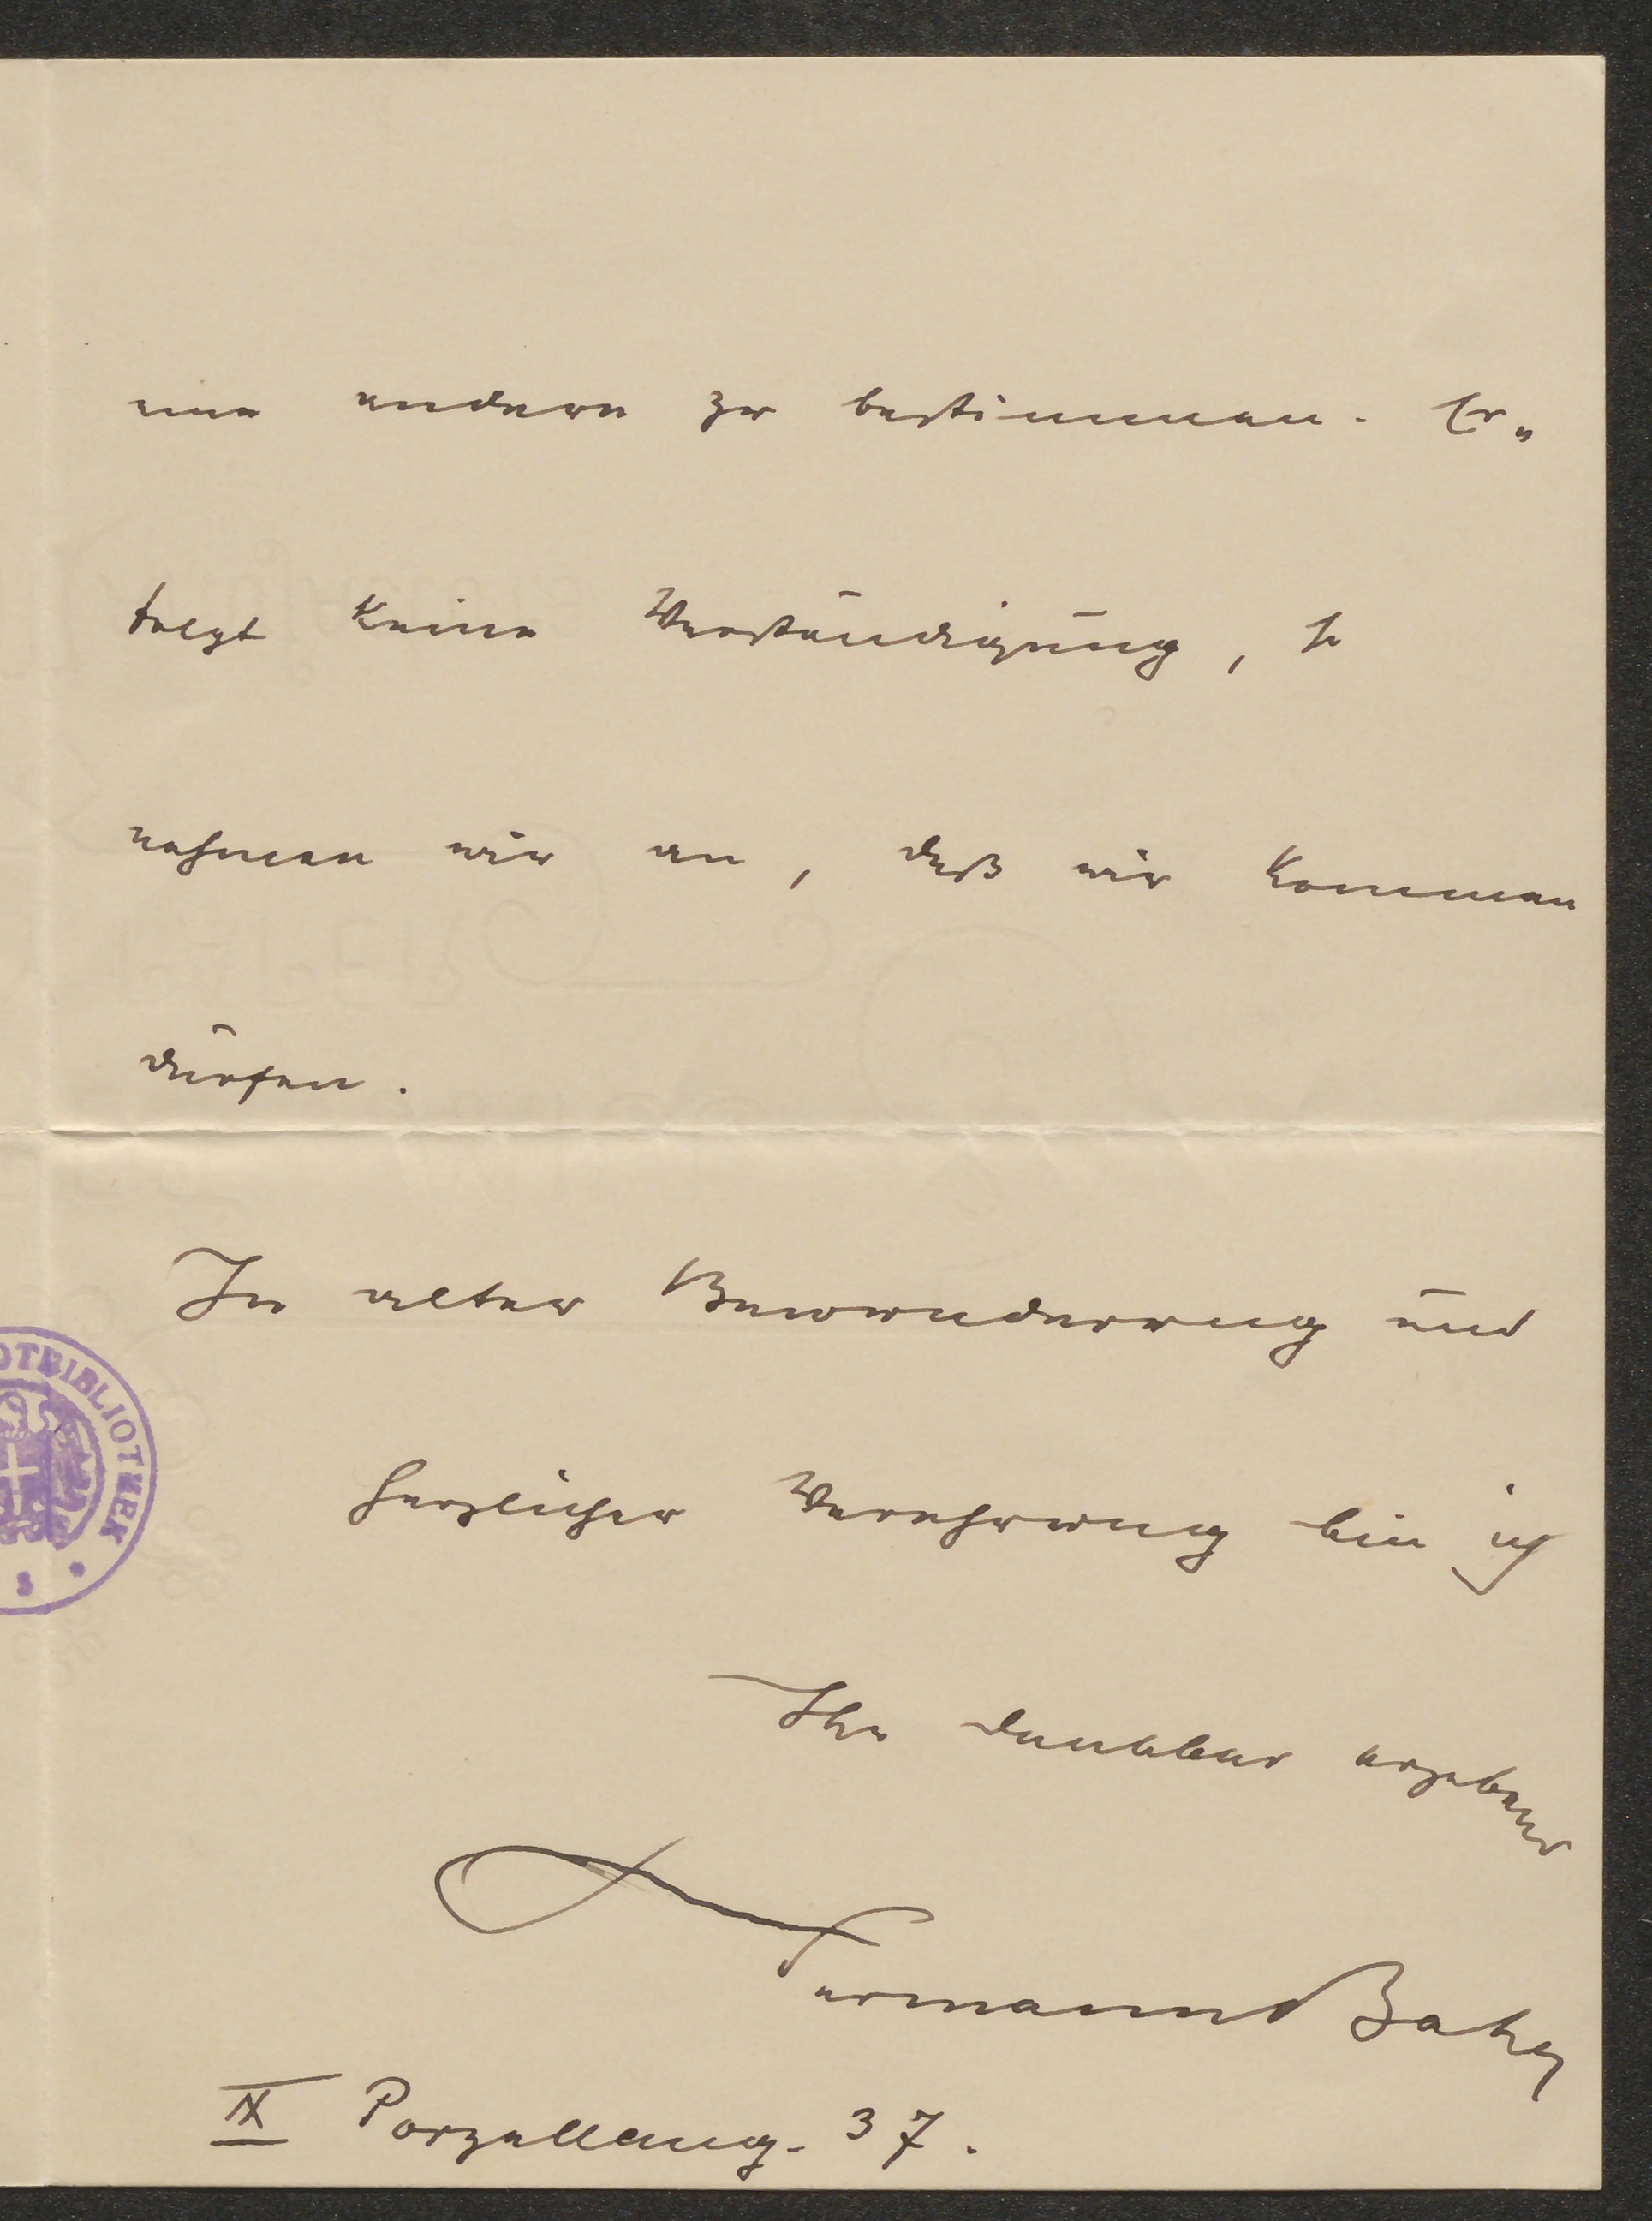 eine andere zu bestimmen. Er-
folgt keine Verständigung, so
nehmen wir an, daß wir kommen
dürfen.
In alter Bewunderung und
herzlicher Verehrung bin ich
Ihr dankbar ergebener
Hermann Bahr
IX Porzellang. 37.
OTBIBLIOTHEK